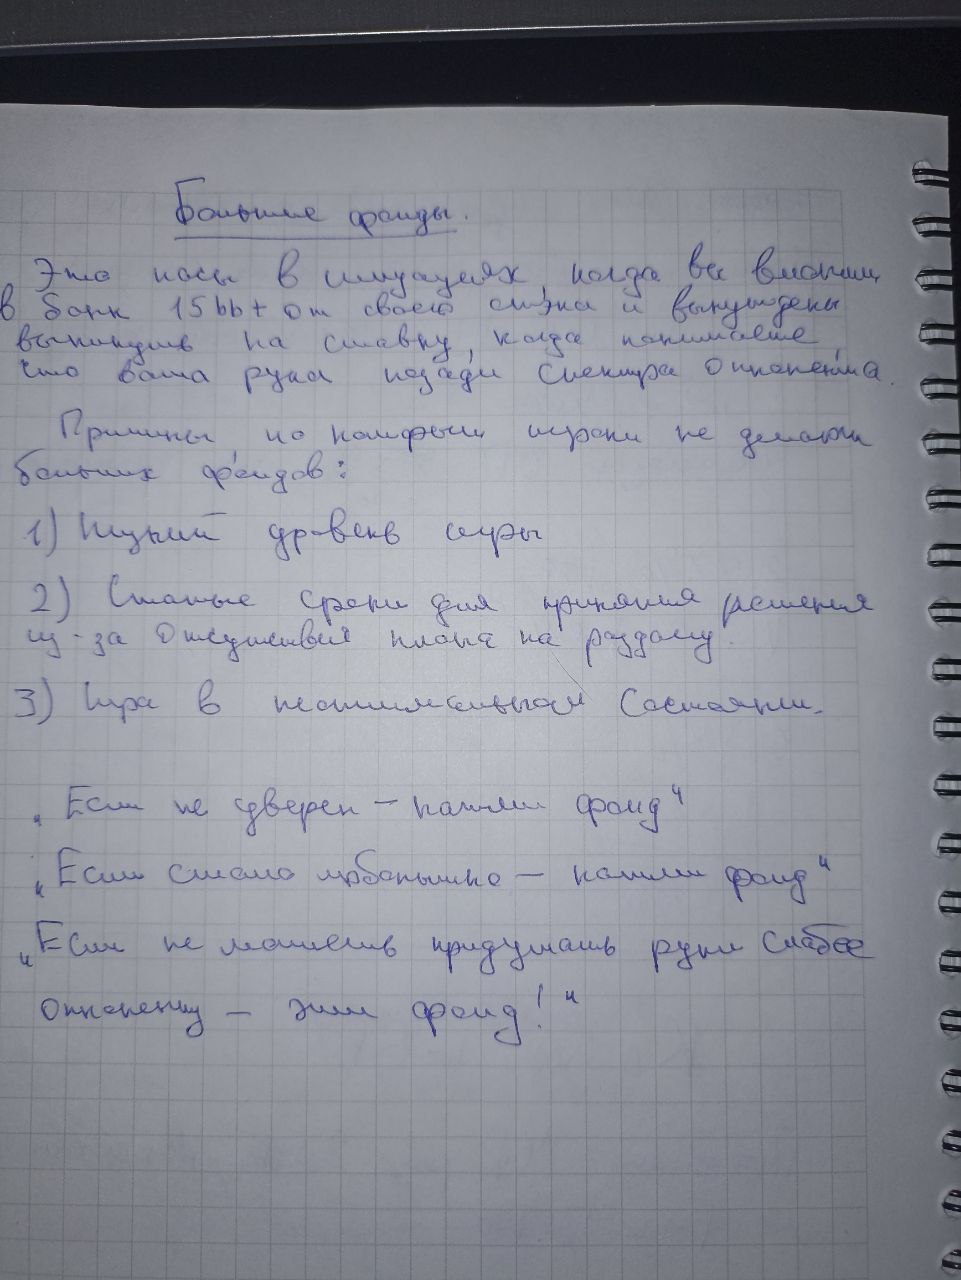 Большие фолды.
Это пасы в ситуациях, когда вы вложили
в банк 15bb+ от своего стэка и вынуждены
выкинуть на ставку, когда понимаете
что ваша рука позади спектра оппонента.
Причины по которым игроки не делают
больших фолдов:
1) Низкий уровень игры
2) Сжатые сроки для принятия решения
из-за отсутствия плана на раздачу.
3) Игра в неоптимальном состоянии.
„Если не уверен – нажми фолд“
„Если стало прбапытно – нажми фолд“
„Если не можешь придумать руки слабее
оппоненту – жми фолд!“